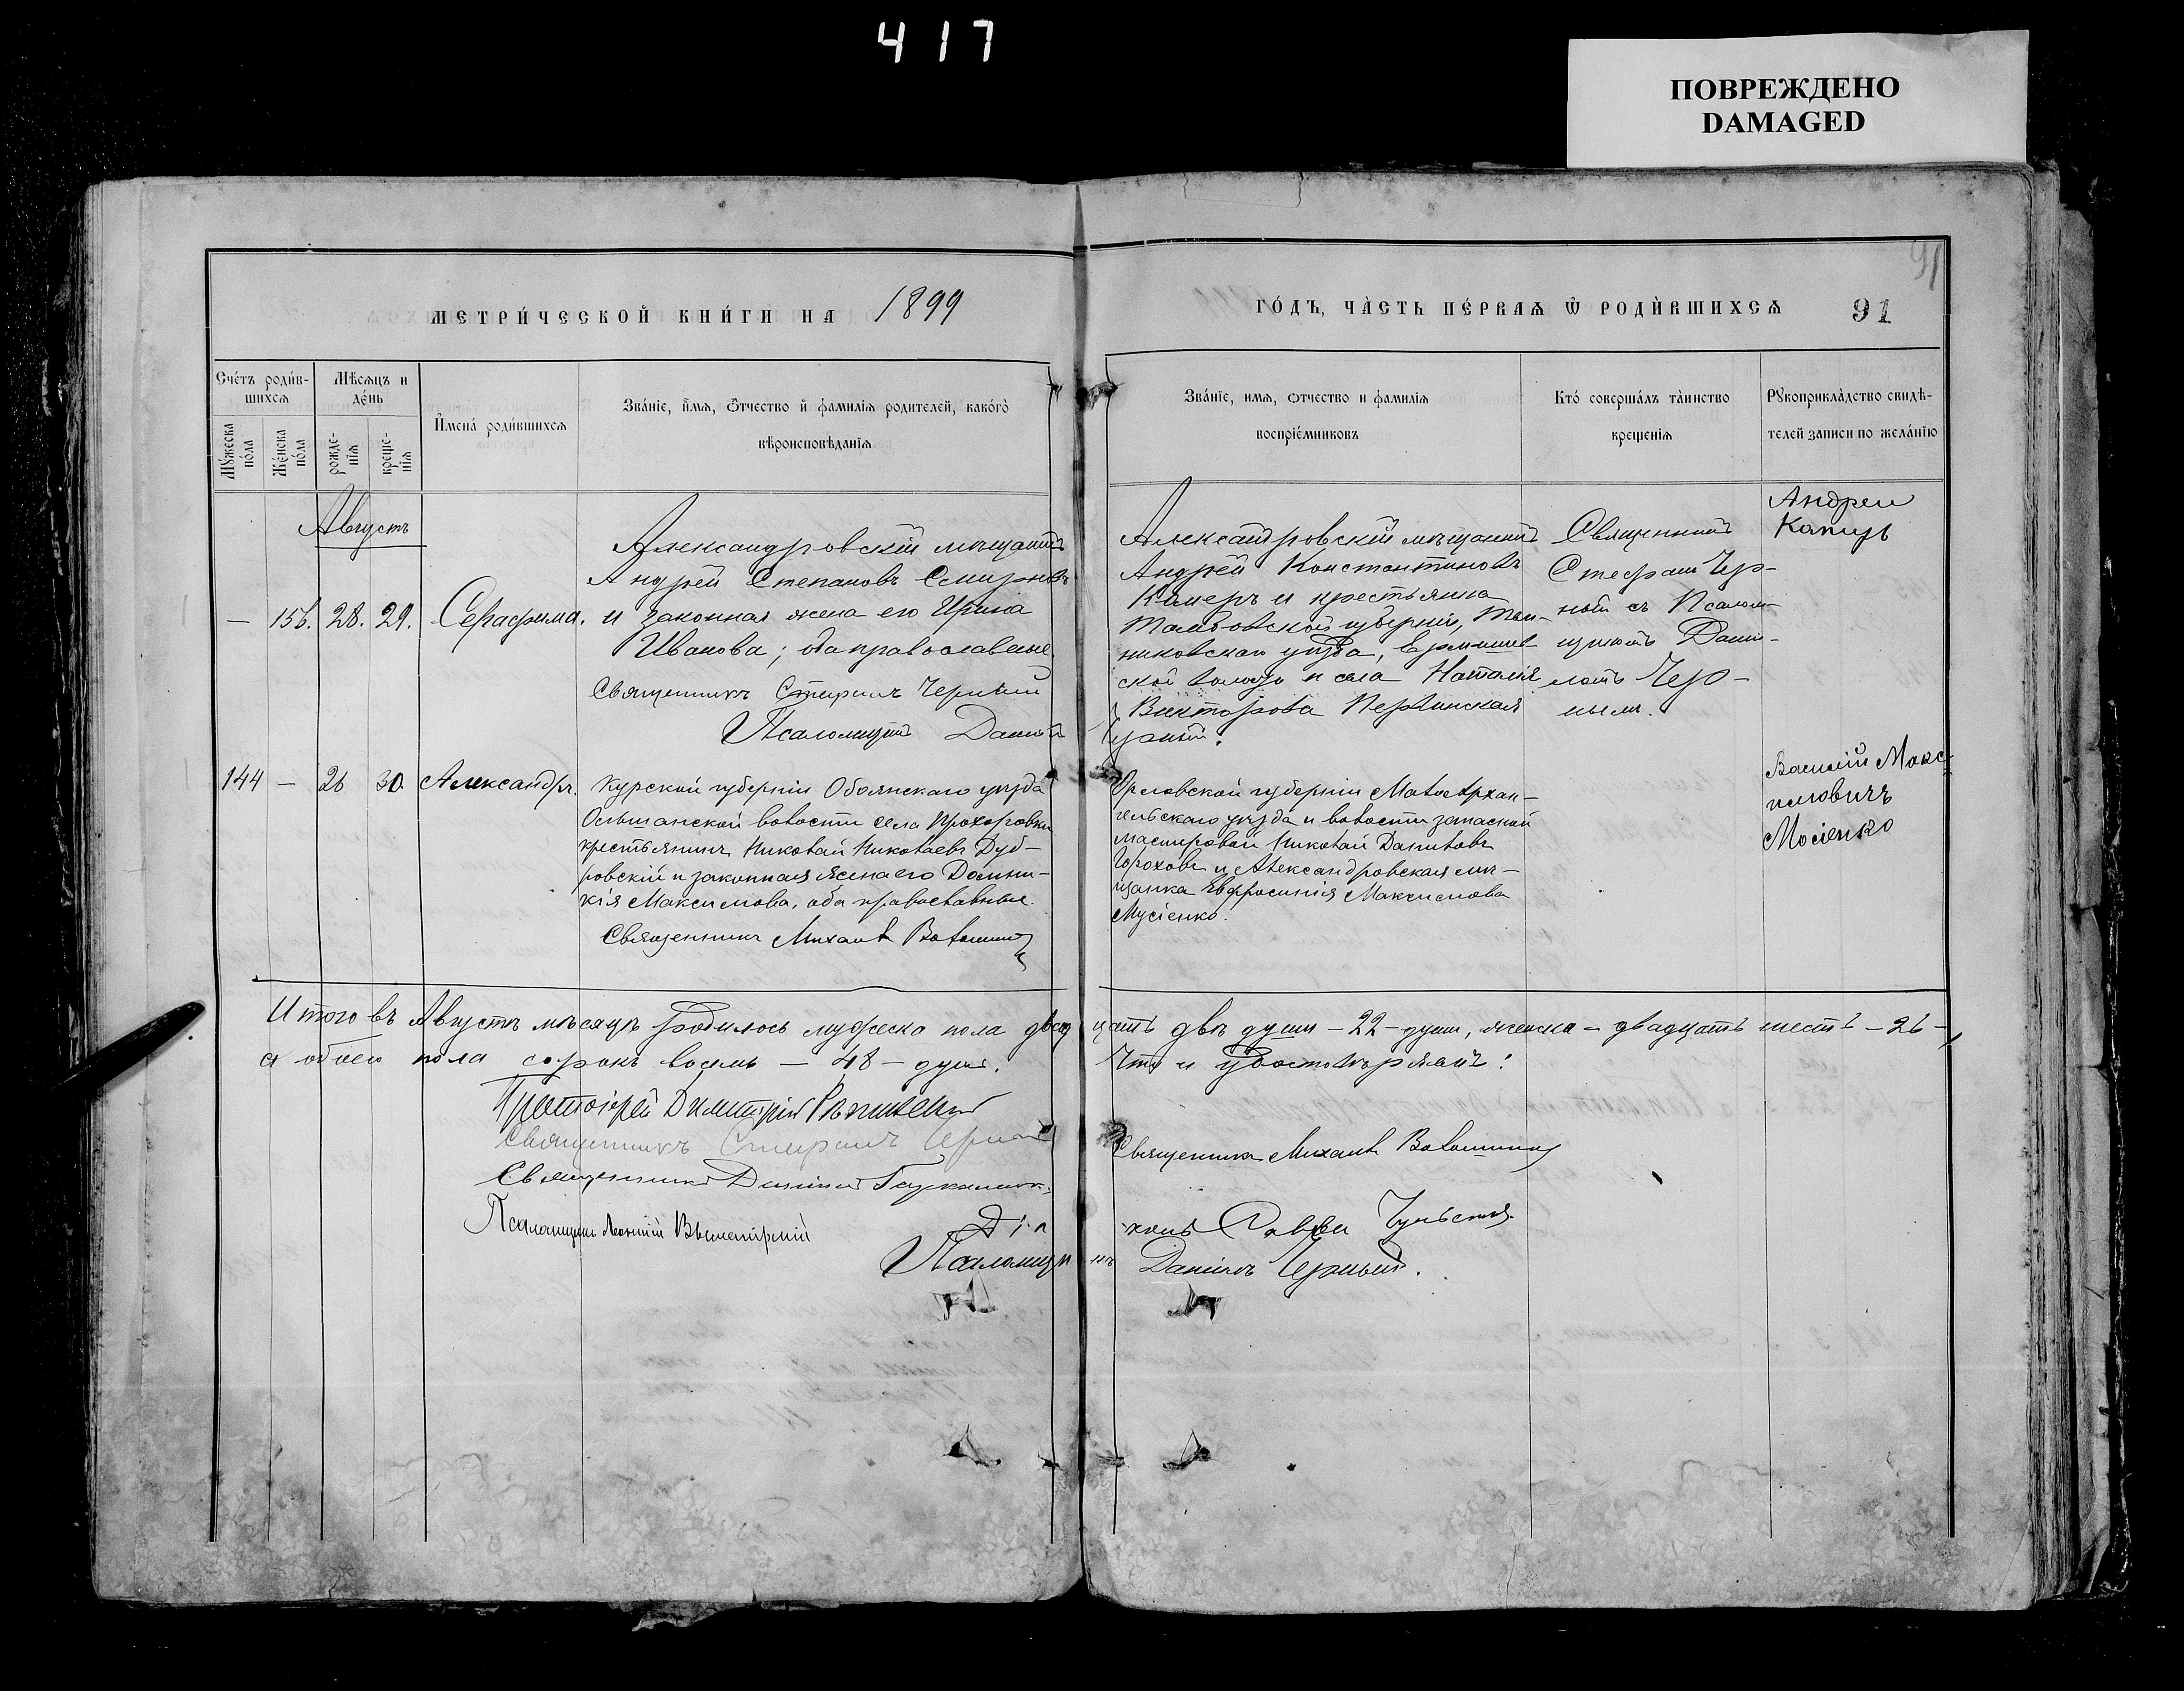 417
ПОВРЕЖДЕНО
DAMAGED
91
МЕТРИ́ЧЕСКОЙ КНИ́ГИ НА 1899
ГО́ДЪ, ЧА̀СТЬ ПЕ́РВАѦ Ѿ РОДЍВШИХСѦ 91
Счéтъ роди́в-
шихсѧ
Мѣсѧцъ и
де́нь
Мꙋ́жеска
по́ла
Же́нска
по́ла
рожде-
нїѧ
креще-
нїѧ
И҆мена̀ роди́вшихсѧ
Зва́нїе, и҆́мѧ, ѻ҆́тчество и҆ фамилїѧ родителей, како́гѡ
вѣроисповѣ́данїѧ
Зва́нїе, имѧ, ѻтчество и фамилїѧ
воспрїе́мниковъ
Кто́ соверша́лъ та̀инство
крещенїѧ
Рꙋкоприкла̀дство свидѣ-
телей записи по жела́нїю
Августъ
— 156. 28. 29. Серафима.
Александровскій мѣщанинъ
Андрей Степановъ Смирновъ
и законная жена его Ирина
Иванова; оба православные
Священникъ Стефанъ Черный
Псаломщикъ Даніилъ Черный.
Александровскій мѣщанинъ
Андрей Константиновъ
и крестьянка
Тамбовской губерніи, Тем-
никовскаго уѣзда,
ской волости и села Наталія
Викторова
Священникъ
Стефанъ Чер-
ный съ Псалом-
щикомъ Дані-
ломъ Чер-
нымъ.
Андреи
144 — 26 30. Александръ.
Курской губерніи Обоянскаго уѣзда
Ольшанской волости села Прохоровки
крестьянинъ Николай Николаевъ Дуб-
ровскій и законная жена его Домни-
кія Максимова, оба православные.
Священникъ Михаилъ Волошинъ
Орловской губерніи Малоархан-
гельскаго уѣзда и волости запасной
мастеровой Николай Даниловъ
Гороховъ и Александровская мѣ-
щанка Евфросинія Максимова
Мусіенко.
Василій Макс-
имовичъ
Мосіенко
Итого въ Августѣ мѣсяцѣ родилось мужеска пола двадцать двѣ души – 22 – души, женска – двадцать шесть – 26 –
а обоего пола сорокъ восемь – 48 – душъ. Что и удостовѣряемъ:
Протоіерей Димитрій
Священникъ Стефанъ Черный
Священникъ Михаилъ Волошинъ
Священникъ
Псаломщикъ
Діаконъ Савва
Псаломщикъ Даніилъ Черный.